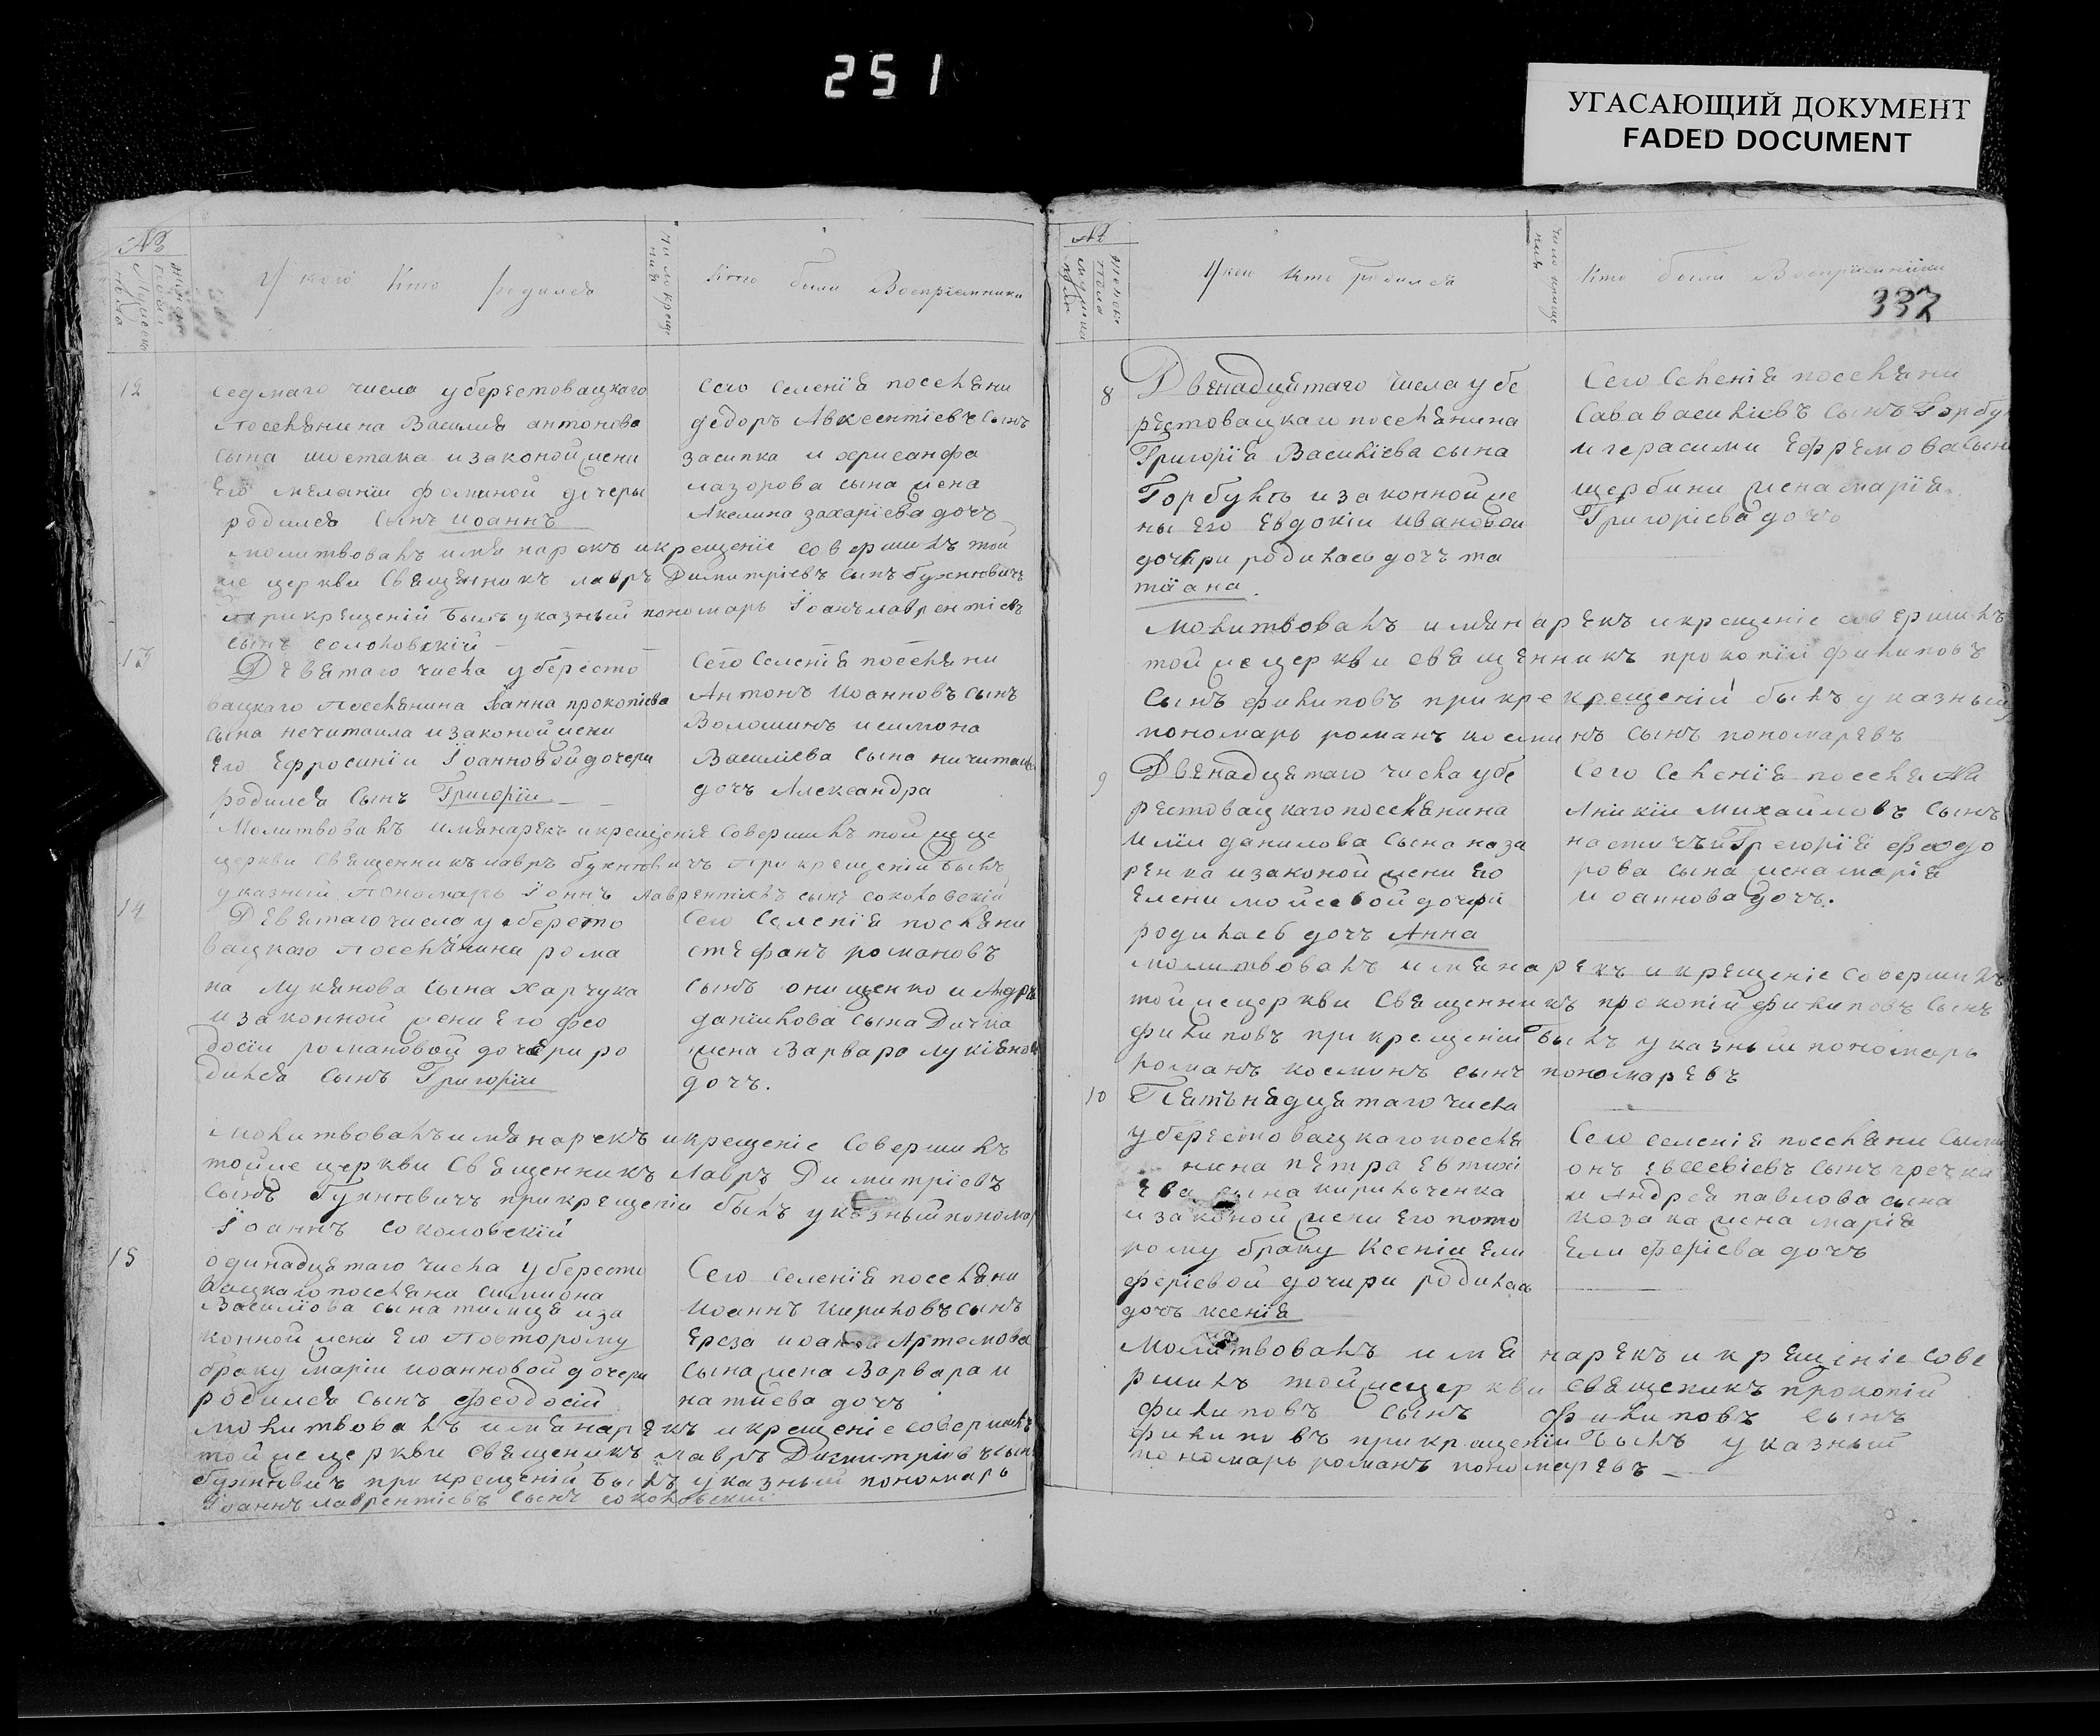 251
УГАСАЮЩИЙ ДОКУМЕНТ
FADED DOCUMENT
№
У кого Кто родился
число креще
ния
Кто были Восприемники
12
Седмаго числа уберестовацкаго
поселянина Василия антонова
сына шостака изаконой жени
Его мелании фоминой дочеры
родился сынъ иоаннъ
Сего Селенїя поселяни
федоръ Авксентиевъ сынъ
засипка и хрисанфа
лазорова сына жена
Акелина захарїева дочъ
молитвовалъ имя нарекъ икрещенїе совершилъ той
же церкви Священникъ лавръ Димитрїевъ сынъ бужновичъ
прикрещенїй былъ указный пономарь Їоанъ лаврентїевъ
сынъ сололовскїй
13
Девятаго числа убересто
вацкаго поселянина Їоанна прокопїева
сына нечитаила изаконой жени
Его Ефросинїи Їоанновой дочери
родился сынъ Григорїи
Сего Селенїя поселяни
Антонъ иоанновъ сынъ
Волошинъ исимона
Василїева сына ничитаила
дочъ Александра
Молитвовалъ имянарекъ икрещенїя совершилъ той же це
церкви священникъ лавръ бужновичъ прикрещенїй былъ
указний пономарь Їоннъ лаврентїевъ сынъ соколовскїй
14
Девятаго числа убересто
вацкаго поселянина рома
на лукянова сына харчука
изаконной жени Его фео
досїи романовой дочери ро
дился сынъ Григорїи
Сего Селенїя посляни
стефанъ романовъ
сынъ онищенко и Андрея
данїилова сына Дичка
жена Варвара лукїянова
дочъ.
Молитвовалъ имя нарекъ икрещенїе совершилъ
тойже церкви Священникъ лавръ Димитрїевъ
сынъ бужновичъ прикрещенїи былъ указный пономарь
Їоаннъ соколовскїй
15
одинадцятаго числа убересто
вацкаго поселяни симиона
Василїова сына тимица иза
конной жени Его повторому
браку марїи иоанновой дочери
родился сынъ феодосїй
Сего Селенїя поселяни
иоаннъ кириловъ сынъ
Ереза иоанна Артемова
сына жена Варвара и
натїева дочъ
молитвовалъ имя нарекъ икрещенїе совершилъ
тойже церкви священикъ лавръ Димитрїивъ сынъ
бужновичъ прикрещенїй былъ указный пономарь
Їоаннъ лаврентїевъ сынъ соколовскїй
№
У кого Кто родился
число креще
ния
Кто были Восприемники
337
8
Двенадцятаго числа убе
рестовацкаго поселянина
Григорїя Василїева сына
Горбуля изаконной же
ны Его Евдокїи ивановой
дочери родилась дочъ та
тїана.
Сего Селенїя поселяни
Сава василїевъ сынъ Горбу
и герасими Ефремова сына
щербини жена марїя
Григорїева дочъ
молитвовалъ имя нарекъ икрещенїе совершилъ
тойже церкви священникъ прокопїй филиповъ
сынъ филиповъ при кре крещенїй былъ указный
пономарь романъ косминъ сынъ пономаревъ
9
Двенадцятаго числа убе
рестовацкаго поселянина
илїи данилова сына наза
ренка изаконой жени его
Елени мойсевой дочери
родилась дочъ Анна
Сего Селенїя поселяни
Аникїи михаиловъ сынъ
Григорїя феодо
рова сына жена марїя
иоаннова дочъ.
молитвовалъ имя нарекъ икрещенїе совершилъ
тойже церкви Священникъ прокопїй филиповъ сынъ
филиповъ при крещенїи былъ указный пономарь
романъ косминъ сынъ пономаревъ
10
Пятьнадцятаго числа
уберестовацкаго поселя
нина петра Евтихї
Ева сына кирильченка
изаконой жени Его пото
рому браку Ксенїи Ели
ферїевой дочири родилась
дочъ ксенїя
Сего селенїя поселяни Сими
онъ Евсевїевъ сынъ гречка
и Андрея павлова сына
козака жена марїя
Елиферїева дочъ
молитвовалъ имя нарекъ икрещенїе сове
ршилъ тойжецеркви священикъ прокопїй
филиповъ сынъ филиповъ сынъ
филиповъ прикрощенїи былъ указный
пономарь романъ пономаревъ